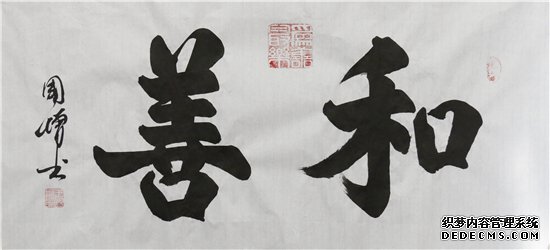 和善
书
织梦内容管理系统
DEDECMS.COM